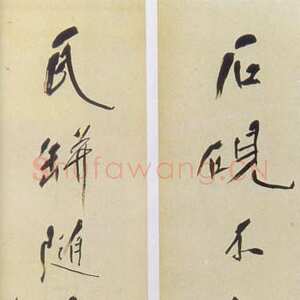 石硯不
瓦缾随
Shufawang.CN